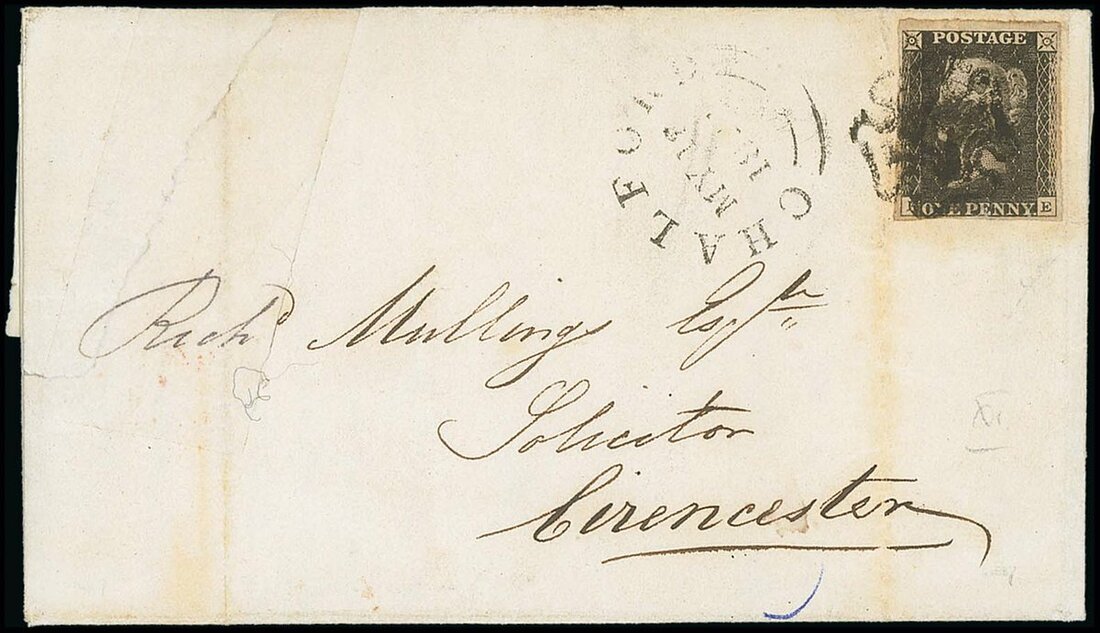 POSTAGE
ONE PENNY
E
CHALFORD
MY
Rich^d Mullings Esq^re
Solicitor
Cirencester